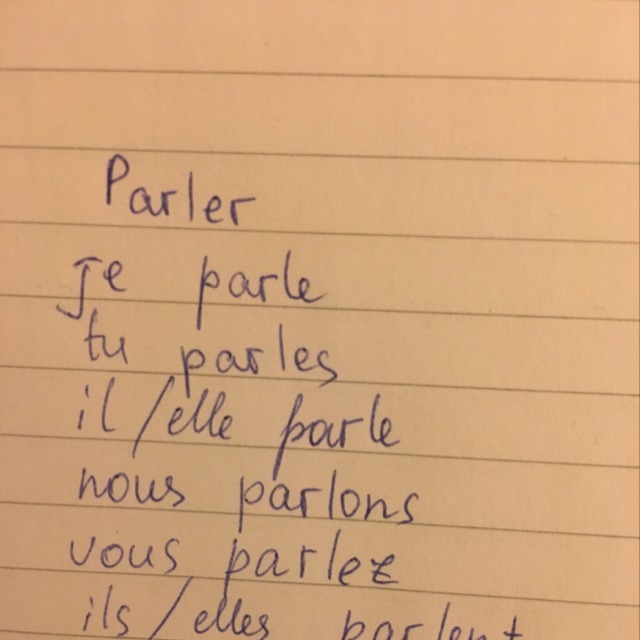 Parler
je parle
tu parles
il/elle parle
nous parlons
vous parlez
ils/elles parlent